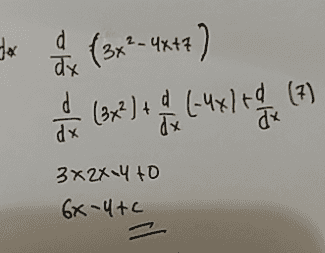 dx d/dx (3x²-4x+7)
d/dx (3x²)+ d/dx (-4x)+ d/dx (7)
3x2x-4+0
6x-4+c